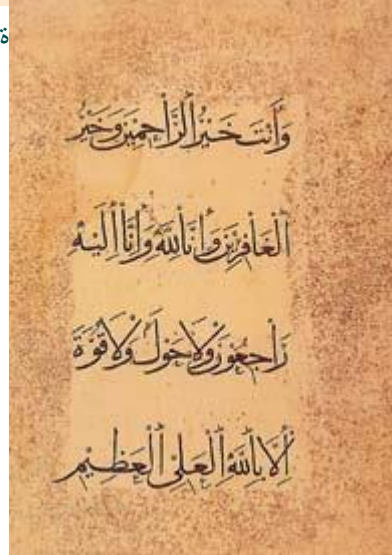 ة
وَأَنْتَ خَيْرُ الرَّاحِمِينَ وَخَيْرُ
الْغَافِرِينَ وَإِنَّا لِلَّهِ وَإِنَّا إِلَيْهِ
رَاجِعُونَ وَلَا حَوْلَ وَلَا قُوَّةَ
إِلَّا بِاللَّهِ الْعَلِيِّ الْعَظِيمِ